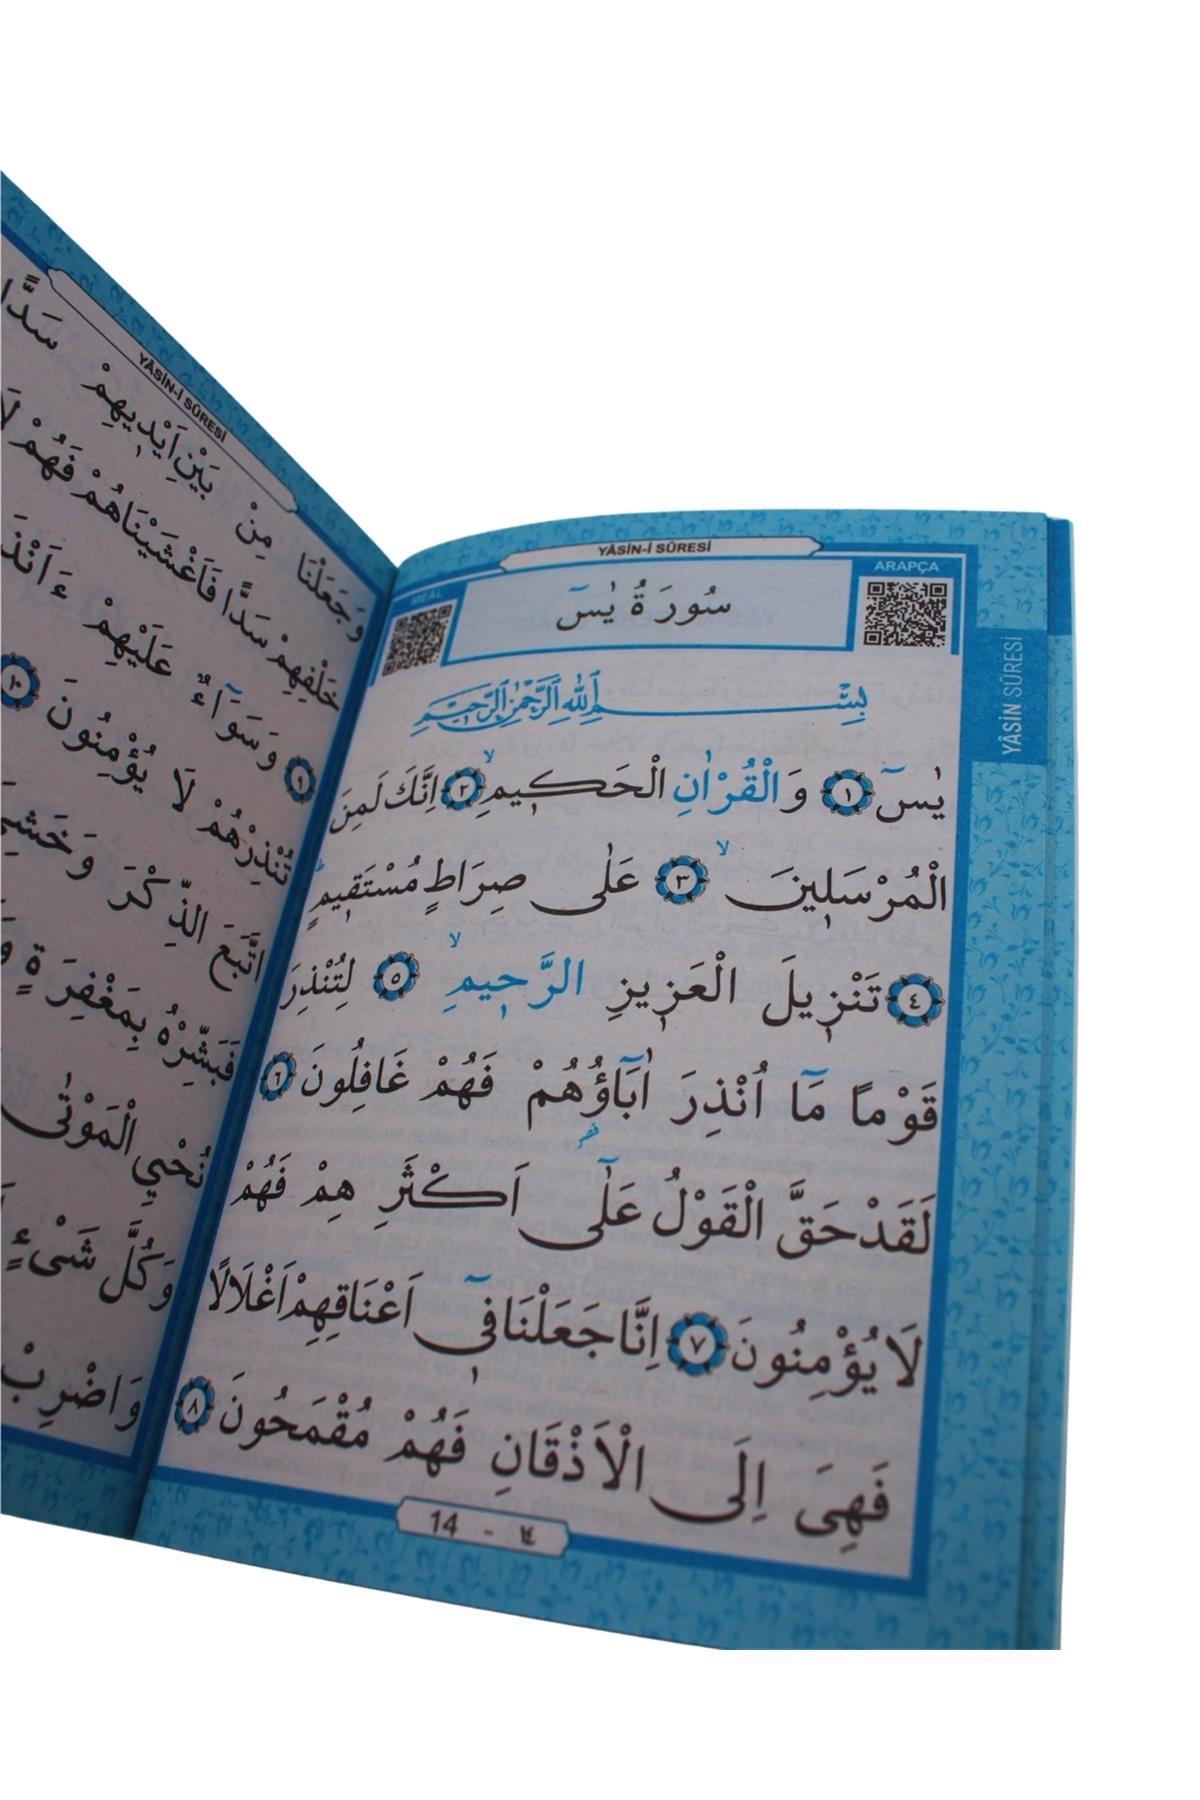 YÂSİN-İ SÛRESİ
MEAL
ARAPÇA
سُورَةُ يٰسٓ
بِسْمِ اللهِ الرَّحْمٰنِ الرَّحِيمِ
يٰسٓ ﴿١﴾ وَالْقُرْاٰنِ الْحَكِيمِ ﴿٢﴾ اِنَّكَ لَمِنَ
الْمُرْسَلِينَ ﴿٣﴾ عَلٰى صِرَاطٍ مُسْتَقِيمٍ
﴿٤﴾ تَنْزِيلَ الْعَزِيزِ الرَّحِيمِ ﴿٥﴾ لِتُنْذِرَ
قَوْمًا مَٓا اُنْذِرَ اٰبَٓاؤُهُمْ فَهُمْ غَافِلُونَ ﴿٦﴾
لَقَدْ حَقَّ الْقَوْلُ عَلٰٓى اَكْثَرِ هِمْ فَهُمْ
لَا يُؤْمِنُونَ ﴿٧﴾ اِنَّا جَعَلْنَا فِٓي اَعْنَاقِهِمْ اَغْلَالًا
فَهِيَ اِلَى الْاَذْقَانِ فَهُمْ مُقْمَحُونَ ﴿٨﴾
14 - ١٤
YÂSİN SÛRESİ
YÂSİN-İ SÛRESİ
وَجَعَلْنَا مِنْ بَيْنِ اَيْدِيهِمْ سَدًّا
خَلْفِهِمْ سَدًّا فَاَغْشَيْنَاهُمْ فَهُمْ لَا
﴿٩﴾ وَسَوَٓاءٌ عَلَيْهِمْ ءَاَنْذَ
تُنْذِرْهُمْ لَا يُؤْمِنُونَ ﴿١٠﴾
اتَّبَعَ الذِّكْرَ وَخَشِيَ
فَبَشِّرْهُ بِمَغْفِرَةٍ وَ
نُحْيِ الْمَوْتٰى
وَكُلَّ شَيْءٍ
وَاضْرِبْ